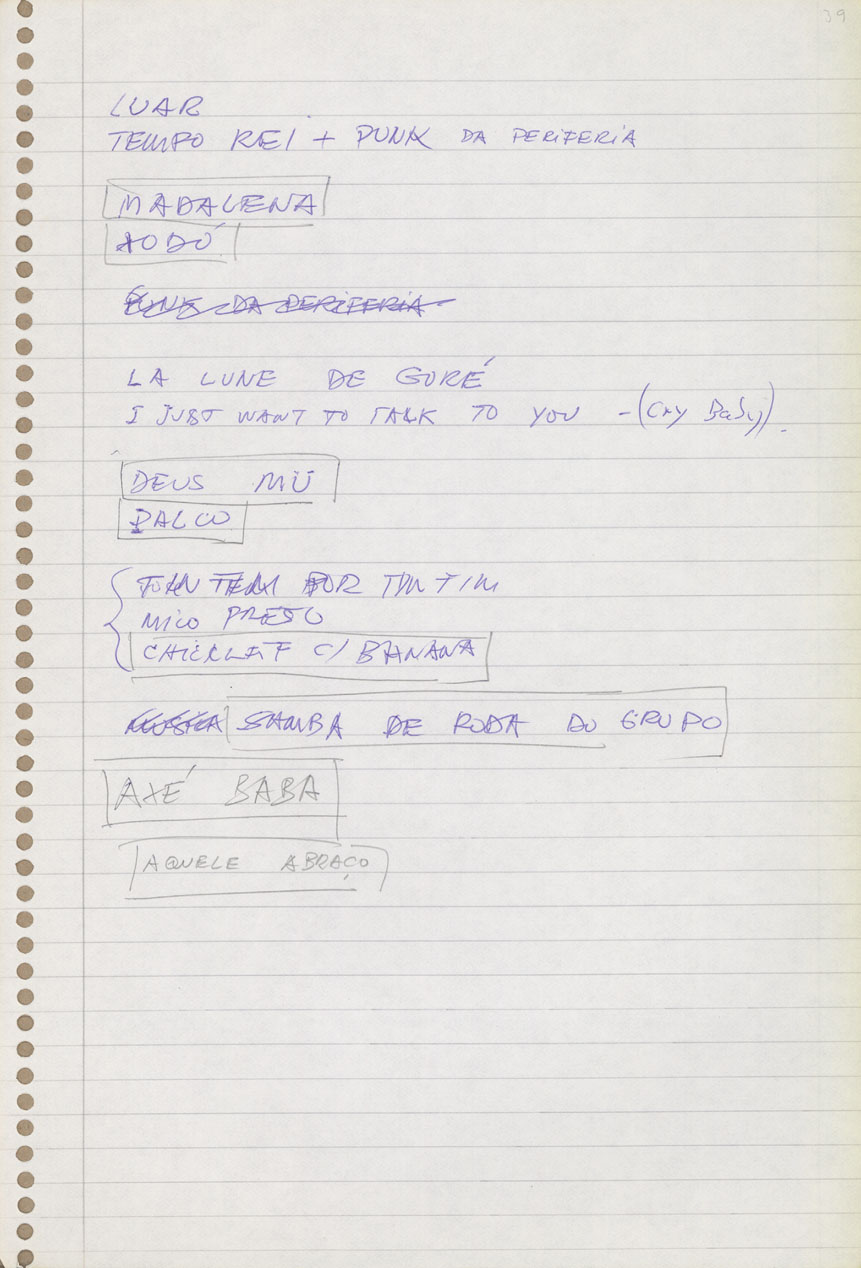 39
LUAR
TEMPO REI + PUNK DA PERIFERIA
MADALENA
XODÓ
PUNK DA PERIFERIA
LA LUNE DE GORÉ
I JUST WANT TO TALK TO YOU - (Cry Baby).
DEUS MÜ
PALCO
POR TIM TIM
MICO PRETO
CHICLET C/ BANANA
SAMBA DE RODA DO GRUPO
AXÉ BABA
AQUELE ABRAÇO